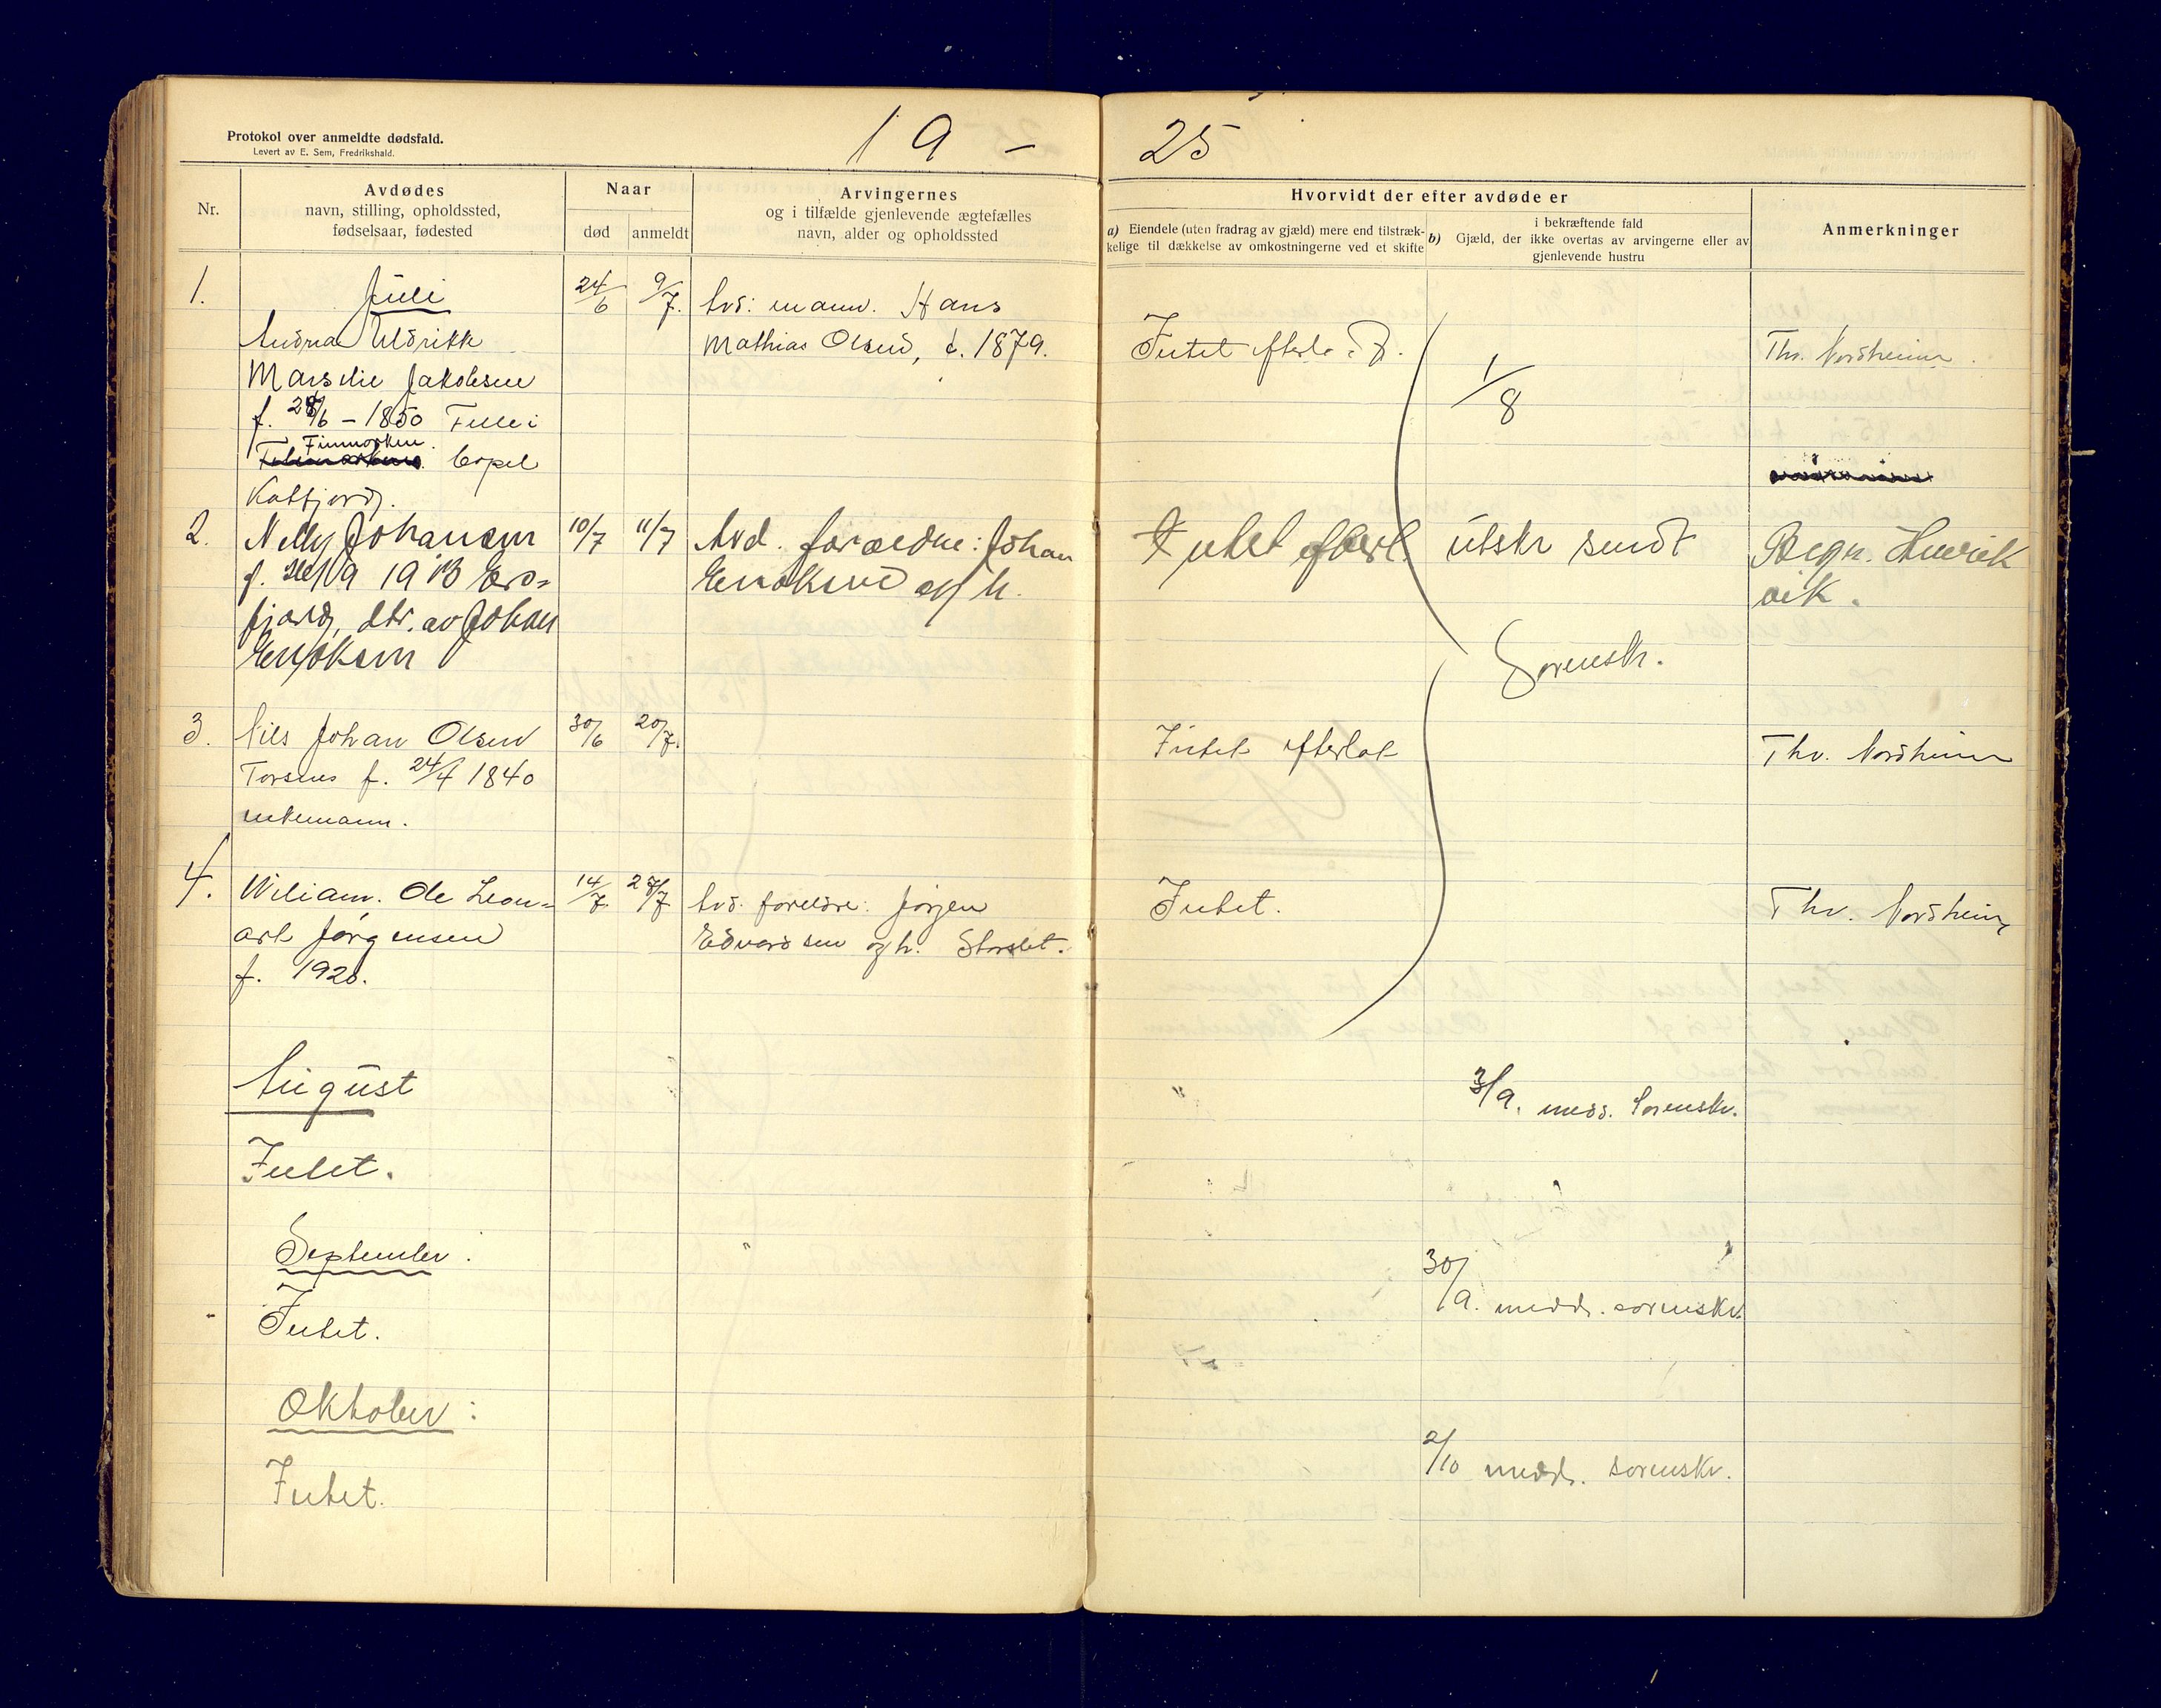 Protokol over anmeldte dødsfald.
Levert av E. Sem, Fredrikshald.
19 – 25
Nr.
Avdødes
navn, stilling, opholdssted,
fødselsaar, fødested
Naar
død
anmeldt
Arvingernes
og i tilfælde gjenlevende ægtefælles
navn, alder og opholdssted
Hvorvidt der efter avdøde er
a) Eiendele (uten fradrag av gjæld) mere end tilstræk-
kelige til dækkelse av omkostningerne ved et skifte
i bekræftende fald
b) Gjæld, der ikke overtas av arvingerne eller av
gjenlevende hustru
Anmerkninger
1.
Juli
Andrea Uldrikk
Marselie Jakobsen
f. 1850
Finmarken
Kobfjord.
24/6
9/7.
Avd: mann. Hans
Mathias Olsen, d. 1879.
Intet
1/8
Thv. Nordheim.
2.
Nelly Johansen
f. 1913
fjord, dtr. av Johan
Eriksen
10/7
11/7
Avd. forældre: Johan
Eriksen og h.
Intet efterl.
utskr sendt
Begr. Henrik
vik.
Sorenskr.
3.
Nils Johan Olsen
Torsnes f. 24/4 1840
enkemann.
30/6
20/7.
Intet efterlat
Thv. Nordheim
4.
Wiliam. Ole Leon-
art Jørgensen
f. 1920.
14/7.
27/7
Avd. foreldre: Jørgen
Edvardsen og h. Storslet.
Intet.
Thv. Nordheim
August
3/9. medd. Sorenskr.
Intet.
September.
30/9. medd. sorenskr.
Intet.
Oktober:
2/10 medd. sorenskr.
Intet.